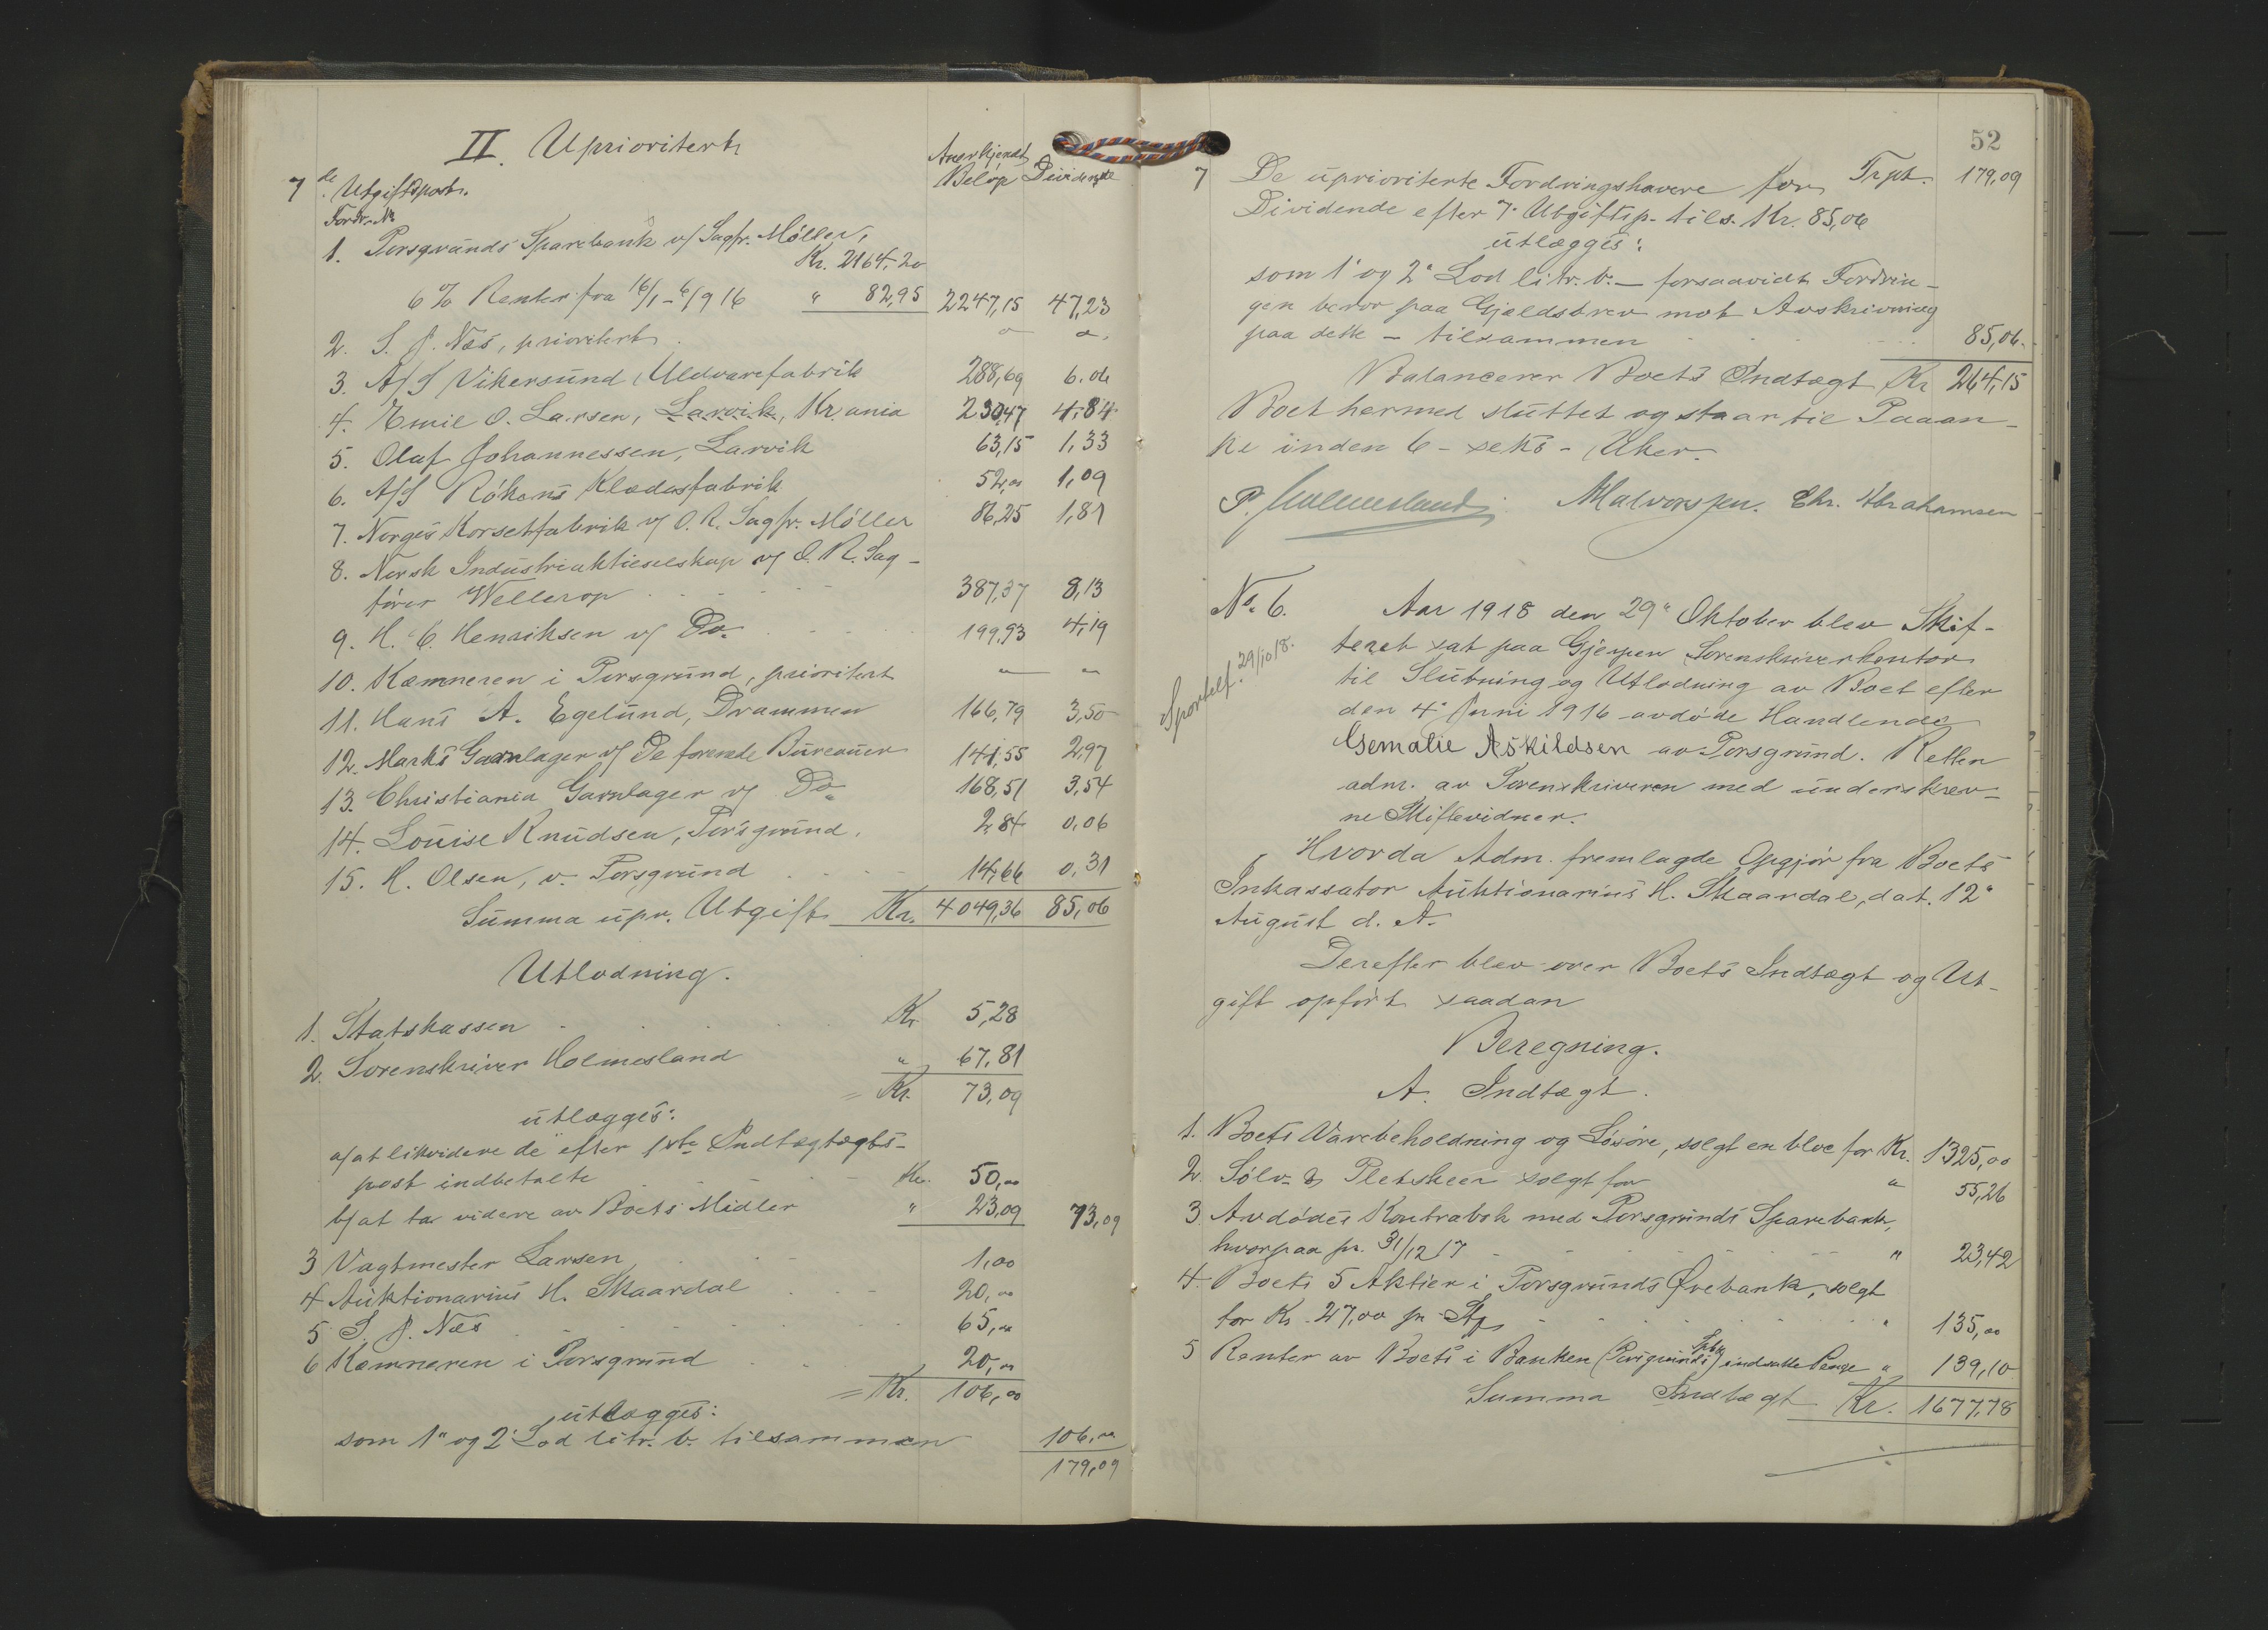 II. Uprioritert
Anerkjendt
Beløp Dividende
7de Utgiftspost.
Fordr. No
1. Porsgrunds Sparebank v/ Sagfr. Møller,
Kr. 2164,20
6 % Renter fra 16/1 - 6/9 16 " 82,95 2247,15 47,23
2. S. J. Næs, prioritert - -
3. A/S Vikersund Uldvarefabrik 288,69 6.06
4. Emil O. Larsen, Larvik, Kr.ania 230,47 4,84
5. Olaf Johannessen, Larvik 63,15 1,33
6. A/S Røkens Klædesfabrik 52,00 1,09
7. Norges Korsetfabrik v/ O. R. Sagfr. Møller 86,25 1,81
8. Norsk Industriaktieselskap v/ O. R. Sag-
fører Wellerop 387,37 8,13
9. H. C. Henriksen v/ Do. 199,93 4,19
10. Kæmneren i Porsgrund, prioritert - -
11. Hans A. Egelund, Drammen 166,79 3,50
12. Marks Garnlager v/ De forenede Bureauer 141,55 2,97
13. Christiania Garnlager v/ Do 168,51 3,54
14. Louise Knudsen, Porsgrund. 2,84 0,06
15. H. Olsen, v. Porsgrund 14,66 0,31
Summa upr. Utgift Kr. 4049,36 85,06
Utlodning.
1. Statskassen Kr. 5,28
2. Sorenskriver Holmesland " 67,81
= Kr. 73,09
utlægges:
a/ at likvidere de efter 1ste Indtægtægts-
post indbetalte Kr. 50,00
b/ at ta videre av Boets Midler " 23,09 73,09
3 Vagtmester Larsen 1,00
4 Auktionarius H. Skaardal 20,00
5 S. J. Næs 65,00
6 Kæmneren i Porsgrund 20,00
= Kr. 106,00
utlægges:
som 1" og 2" Lod litr. b. tilsammen 106,00
179,09
52
7 De uprioriterte Fordringshavere for Trpt. 179,09
Dividende efter 7. Utgiftsp. tils. Kr. 85,06
utlægges:
som 1" og 2" Lod litr. b. - forsaavidt Fordrin-
gen beror paa Gjældsbrev mot Avskrivning
paa dette - tilsammen 85,06.
Balancerer Boets Indtægt Kr 264,15
Boet hermed sluttet og staar til Paaan-
ke inden 6 - seks - Uker.
P. Holmesland. Malvorsen. Chr. Abrahamsen
No. 6. Aar 1918 den 29" Oktober blev Skif-
teret sat paa Gjerpen Sorenskriverkontor
Sportelf. 29/10 18.
til Slutning og Utlodning av Boet efter
den 4" Juni 1916 avdøde Handlende
Gematie Askildsen av Porsgrund. Retten
adm. av Sorenskriveren med underskrev-
ne Skiftevidner.
Hvorda Adm. fremlagde Opgjør fra Boets
Inkassator Auktionarius H. Skaardal, dat. 12"
August d. A.
Derefter blev over Boets Indtægt og Ut-
gift opført saadan
Beregning.
A. Indtægt.
1. Boets Varebeholdning og Løsøre, solgt en bloc for Kr. 1325,00
2. Sølv- & Pletskeer solgt for " 55,26
3. Avdødes Kontrabok med Porsgrunds Sparebank,
hvorpaa pr. 31/12 17 " 23,42
4. Boets 5 Aktier i Porsgrunds Ørebank, solgt
for Kr. 27,00 pr. Stk. " 135,00
5 Renter av Boets i Banken (Porsgrunds Spbk) indsatte Penge " 139,10
Summa Indtægt Kr. 1677,78